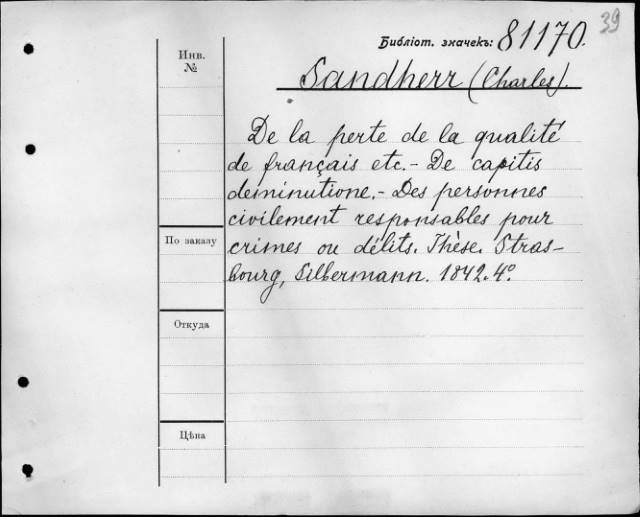 39
Библіот. значекъ: 81170.
Инв.
№
Sandherr (Charles).
De la perte de la qualité
de français etc. - De capitis
deminutione. - Des personnes
civilement responsables pour
По заказу
crimes ou délits. Thèse. Stras-
bourg, Silbermann. 1842. 4°.
Откуда
Цѣна